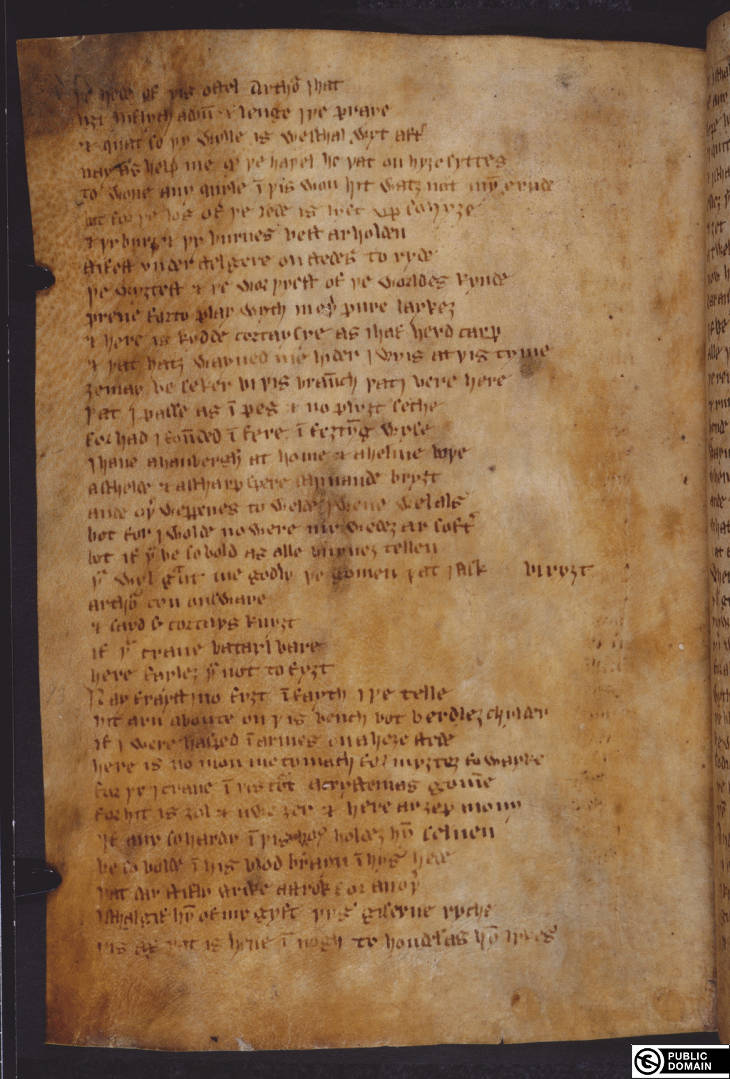 þe hede of þis ostel Arthoʳ I hat
liȝt luflych adoũ & lenge I þe praye
& quat so þy wylle is we schal wyt aft̾
nay as help me qͦ þe haþel he þat on hyȝe syttes
to wone any quyle ī þis won hit watz not myn ernde
bot for þe los of þe lede is lyft vp so hyȝe
& þy burȝ & þy burnes best ar holden
stifest vnder stelgere on stedes to ryde
þe wyȝtest & þe worþyest of þe worldes kynde
preue forto play wyth in oþ̾ pure laykez
& here is kydde cortaysye as I haf herd carp
& þat hatz wayned me hider Iwyis at þis tyme
ȝe may be seker bi þis braūch þat I bere here
þat I passe as ī pes & no plyȝt seche
for had I foūded ī fere ī feȝtyng wyse
I haue a hauberghe at home & a helme boþe
a schelde & a scharp spere schinande bryȝt
ande oþ̾ weppenes to welde I wene wel als
bot for I wolde no were my wedez ar soft̾
bot if þͧ be so bold as alle burnez tellen
þͧ wyl gͣnt me godly þe gomen þat I ask bi ryȝt
arthoʳ con onsware
& sayd sͬ cortays knyȝt
if þͧ craue batayl bare
here faylez þͧ not to fyȝt
Nay frayst I no fyȝt ī fayth I þe telle
hit arn aboute on þis bench bot berdlez chylder
if I were hasped ī armes on a heȝe stede
here is no mon me to mach for myȝtez so wayke
for þy I craue ī þis coʳt a crystemas gomē
for hit is ȝol & nwe ȝer & here ar ȝep mony
if any so hardy ī þis hous holdez hȳ seluen
be so bolde ī his blod brayn ī hys hede
þat dar stifly strike a strok for an oþ̾
I schal gif hȳ of my gyft þys giserne ryche
þis ax þat is heue ī nogh to hondele as hȳ lykes
PUBLIC
DOMAIN